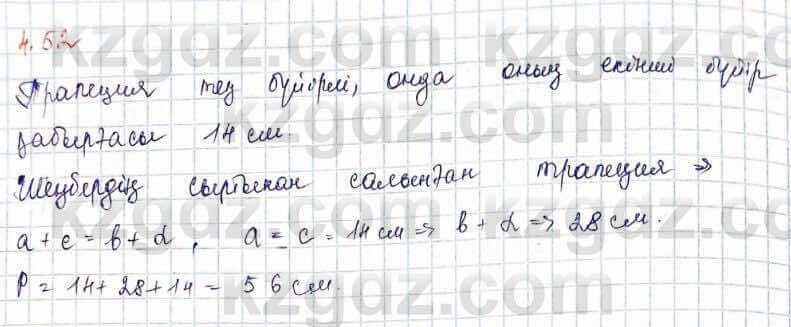 4.52
Трапеция тең бүйірлі, онда оның екінші бүйір
қабырғасы 14 см.
Шеңберден сырттан салынған трапеция ⇒
a + c = b + d, a = c = 14 см ⇒ b + d ⇒ 28 см.
P = 14 + 28 + 14 = 56 см.
kzgdz.com